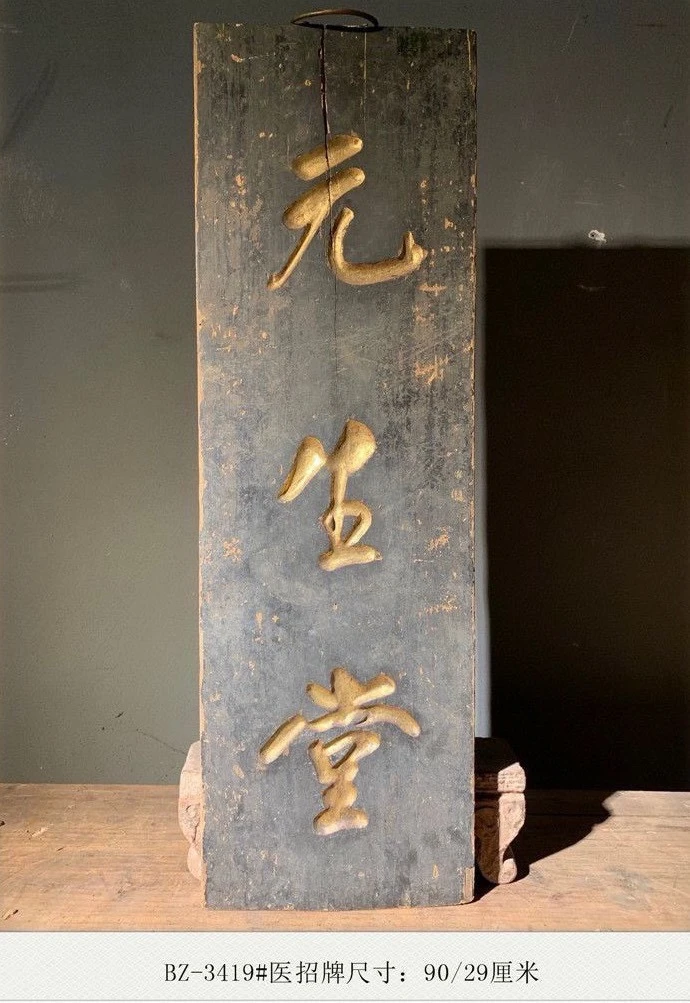 元生堂
BZ-3419#医招牌尺寸：90/29厘米